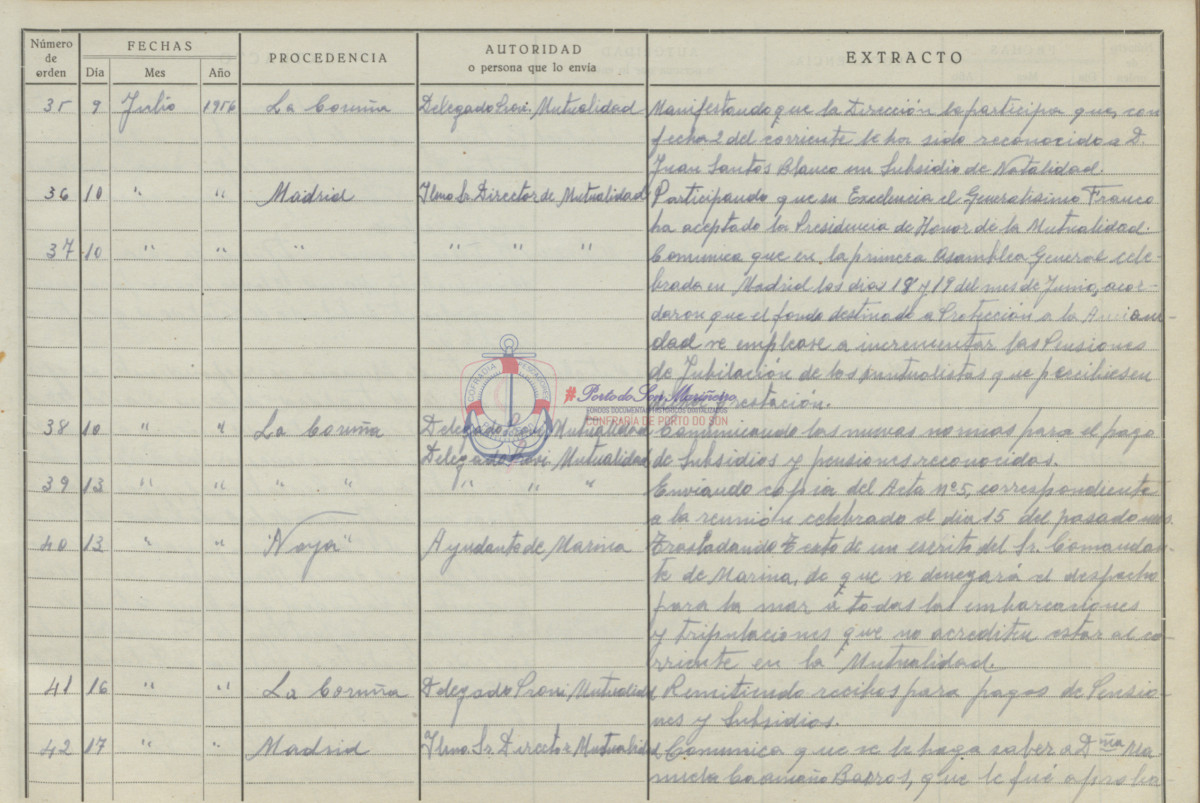 Número de orden FECHAS PROCEDENCIA AUTORIDAD o persona que lo envía EXTRACTO
Día Mes Año
35 9 Julio 1956 La Coruña Delegado Provi. Mutualidad Manifestando que la Dirección le participa que, con
fecha 2 del corriente le ha sido reconocido a D.
Juan Santos Blanco un Subsidio de Natalidad.
36 10 " " Madrid Ilmo. Sr. Director de Mutualidad Participando que su Excelencia el Generalisimo Franco
ha aceptado la Presidencia de Honor de la Mutualidad.
37 10 " " " " " " Comunica que en la primera Asamblea General cele-
brada en Madrid los dias 18 y 19 del mes de Junio, acor-
daron que el fondo destinado a Protección a la Anciani-
dad se emplease a incrementar las Pensiones
de Jubilación de los mutualistas que percibiesen
prestación.
38 10 " " La Coruña Delegado Provi. Mutualidad Comunicando las nuevas normas para el pago
Delegado Provi. Mutualidad de Subsidios y pensiones reconocidas.
39 13 " " " " " " " Enviando copia del Acta nº 5, correspondiente
a la reunión celebrado el dia 15 del pasado mes.
40 13 " " "Noya" Ayudante de Marina Trasladando Texto de un escrito del Sr. Comandan-
te de Marina, de que se denegará el despacho
para la mar a todas las embarcaciones
y tripulaciones que no acrediten estar al co-
rriente en la Mutualidad.
41 16 " " La Coruña Delegado Provi. Mutualidad Remitiendo recibos para pagos de Pensio-
nes y Subsidios.
42 17 " " Madrid Ilmo. Sr. Director Mutualidad Comunica que se le haga saber a Dña Ma-
nuela Caamaño Barros, que le fué aproba-
COFRADIA
#Porto do Son Mariñeiro
FONDOS DOCUMENTAIS HISTÓRICOS DIGITALIZADOS
CONFRARÍA DE PORTO DO SON